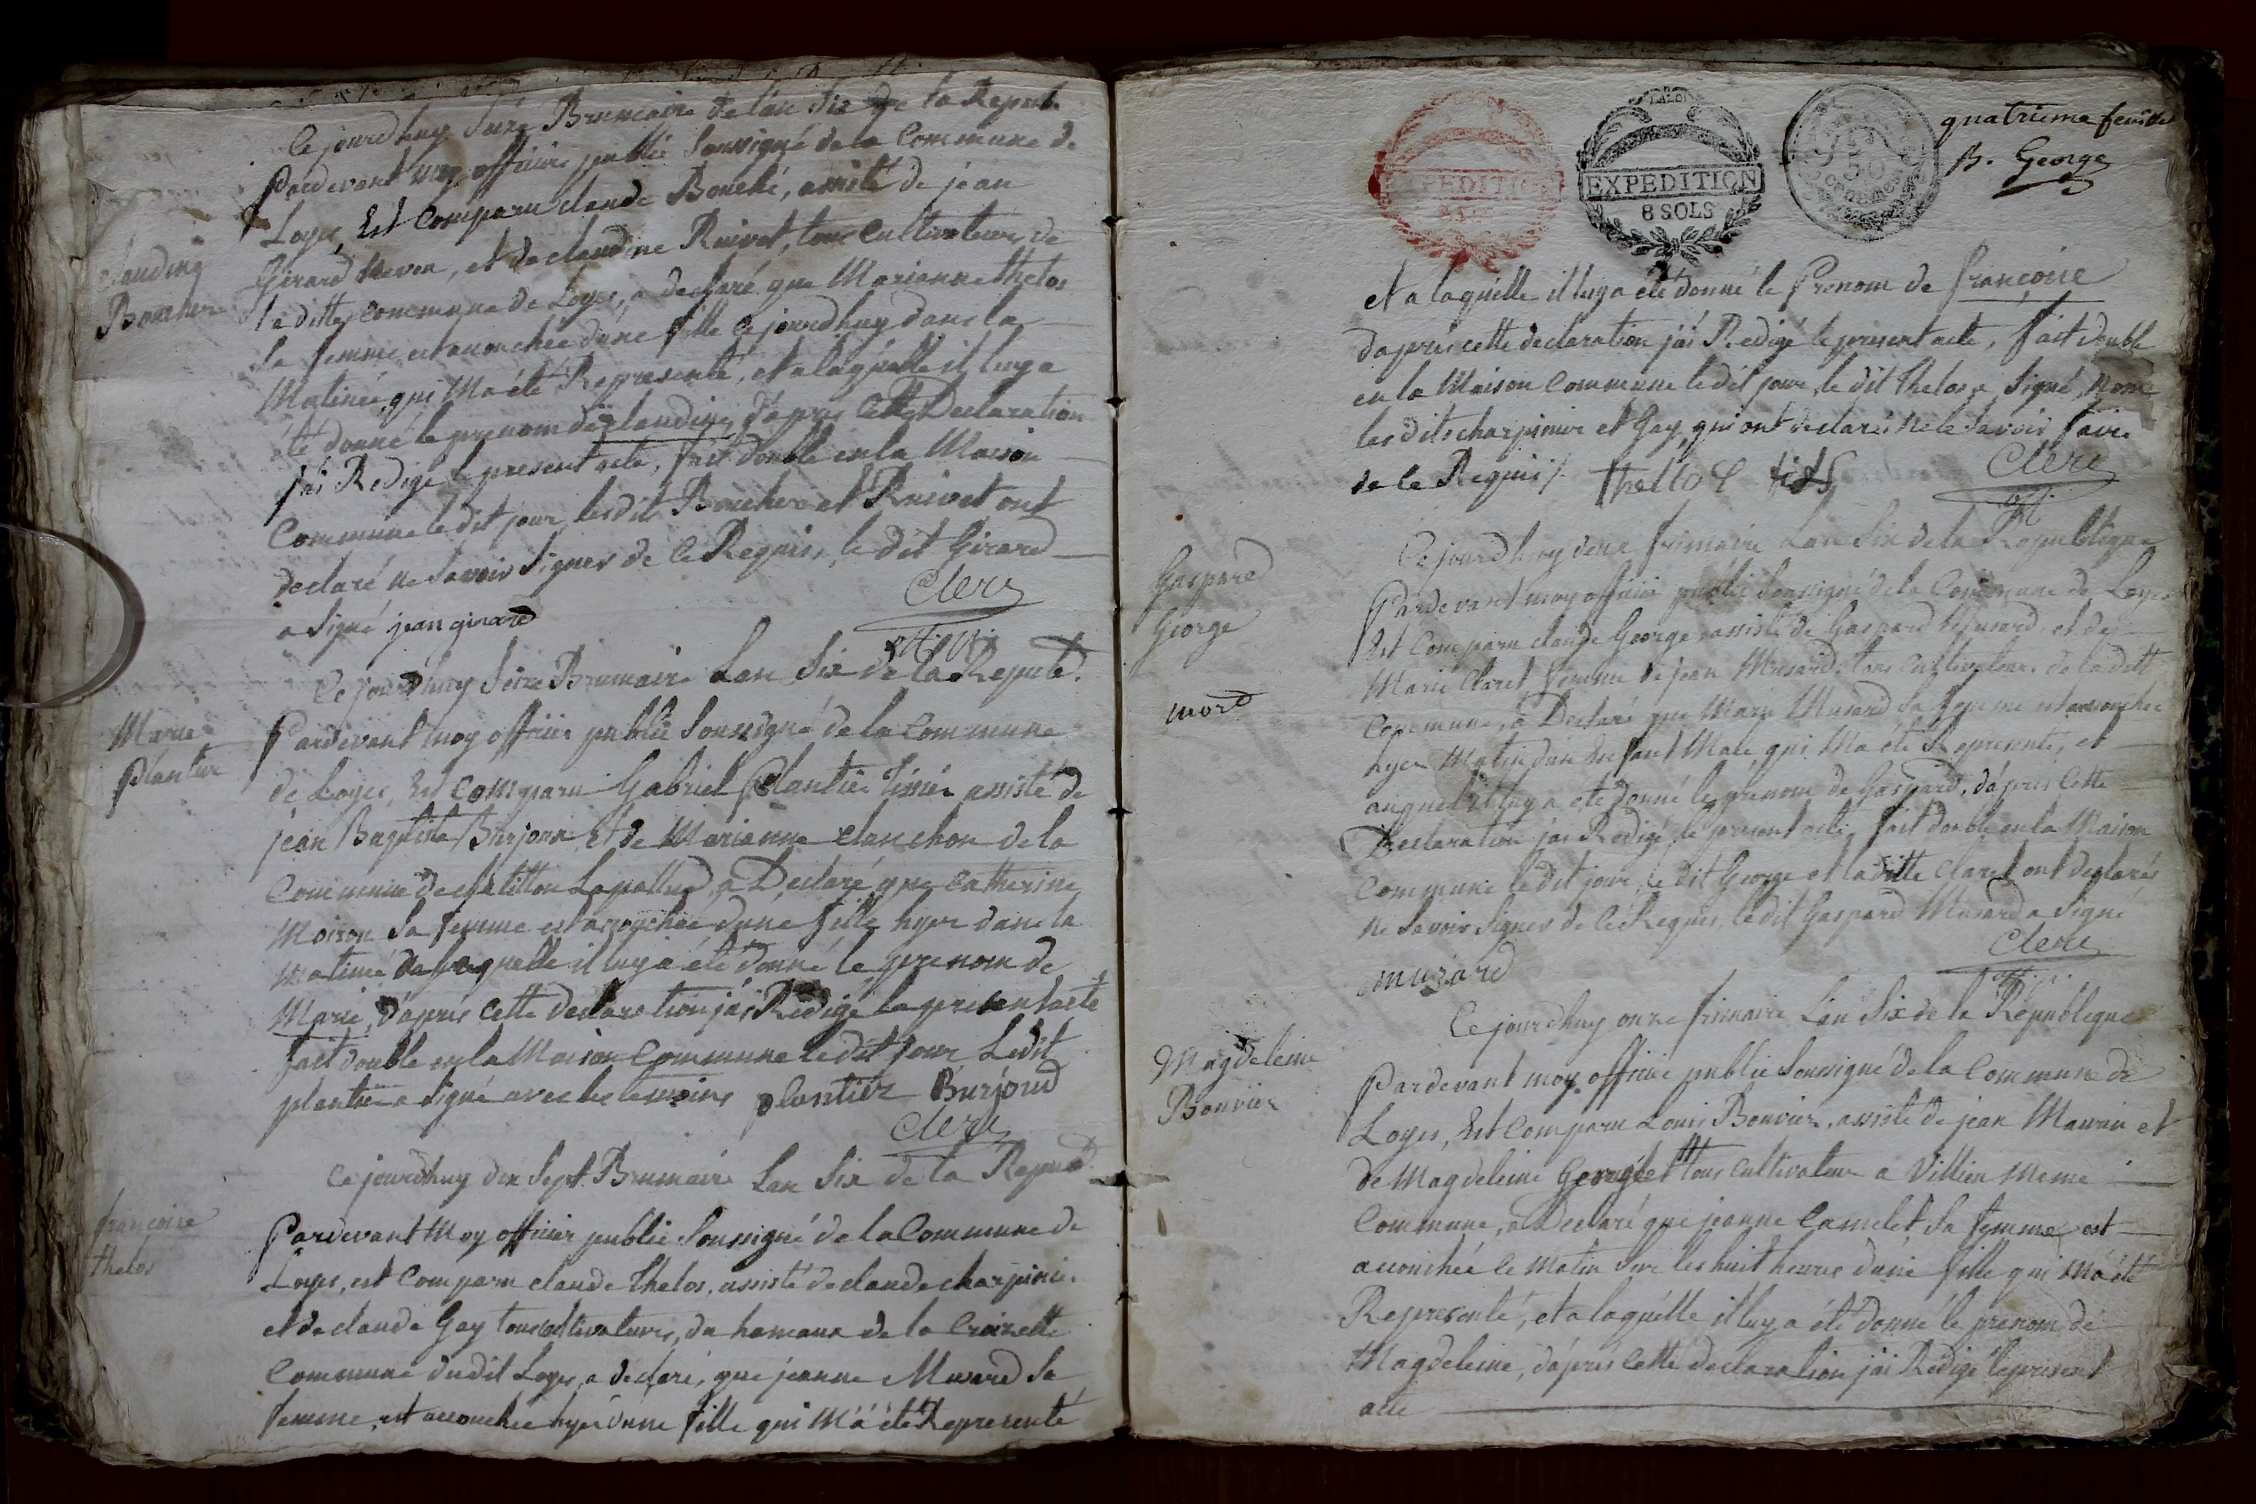 Ce jourdhuy Seize Brumaire de l'an Six de la Repub.
Pardevant moy officier public Soussigné de la Commune de
Loyes, Est Comparu claude Bouché, assisté de jean
Girard, et de claudine Ruivet, tous Cultivateurs de
la ditte Commune de Loyes, a declaré que Marianne thelos
Sa femme est accouchée d'une fille Ce jourdhuy dans la
Matinée qui M'a été Representé, et a laquelle il luy a
été donné le prenom de claudine d'apres Cette Declaration
j'ai Redigé le present acte, fait double en la Maison
Commune le dit jour, les dits Boucher et Ruivet ont
declaré ne Savoir Signer de Ce Requis, le dit Girard
a Signé jean girard
Clerc
off. p.
claudine
Boucher
Ce jourdhuy Seize Brumaire L'an Six de la Repub.
Pardevant moy officier public Soussigné de la Commune
de Loyes, Est Comparu Gabriel Plantier tissier assisté de
jean Baptiste Burjoud Et de Marianne clanchon de la
Commune de chatillon Lapallud, a Declaré que Catherine
Moiron Sa femme est accouchée d'une fille hyer dans la
matinée laquelle il luy a été donné le prenom de
Marie, d'apres Cette declaration j'ai Redigé le present acte
fait double en la Maison Commune le dit jour Ledit
plantier a Signé avec les temoins plantier Burjoud
Clerc
Marie
Plantier
Ce jourdhuy dix Sept Brumaire L'an Six de la Repub.
Pardevant Moy officier public Soussigné de la Commune de
Loyes, est Comparu claude thelos, assisté de claude charpinier
et de claude Gay tous Cultivateurs, du hameaux de la Croizette
Commune dudit Loyes, a declaré, que jeanne Musard Sa
femme est accouchée hyer d'une fille qui M'a été Representé
françoise
thelos
quatrieme feuille
B. George
EXPEDITION
8 SOLS
EXPEDITION
8 SOLS
50
et a laquelle il luy a été donné le Prenom de françoise
d'apres cette declaration j'ai Redigé le present acte, fait double
en la Maison Commune le dit jour, le dit thelos a Signé, Non
les dits charpinier et Gay qui ont declarés ne le Savoir faire
de Ce Requis /. thellos fils
Clerc
off.
Ce jourdhuy deux frimaire L'an Six de la Republique
Pardevant moy officier public Soussigné de la Commune de Loyes
Est Comparu claude George assisté de Gaspard Musard et de
Marie Claret femme de jean Musard, tous Cultivateurs de la ditte
Commune, a Declaré que Marie Musard Sa femme est accouchée
hyer Matin d'un Enfant Male, qui M'a été Representé, et
auquel il luy a été donné le prenom de Gaspard, d'apres Cette
Declaration j'ai Redigé le present acte fait double en la Maison
Commune le dit jour, le dit George et la ditte Claret ont declarés
ne Savoir Signer de Ce Requis, le dit Gaspard Musard a Signé
Clerc
muzard
off. p.
Gaspard
George
mort
Ce jourdhuy onze frimaire L'an Six de la Republique
Pardevant moy officier public Soussigné de la Commune de
Loyes, Est Comparu Louis Bouvier, assisté de jean et
de Magdeleine George tous Cultivateur a Villieu Meme
Commune, a Declaré que jeanne Camelet, Sa femme est
accouchée Ce Matin Sur les huit heures d'une fille qui M'a été
Representé, et a laquelle il luy a été donné le prenom de
Magdeleine, d'apres Cette declaration j'ai Redigé le present
acte
Magdeleine
Bouvier